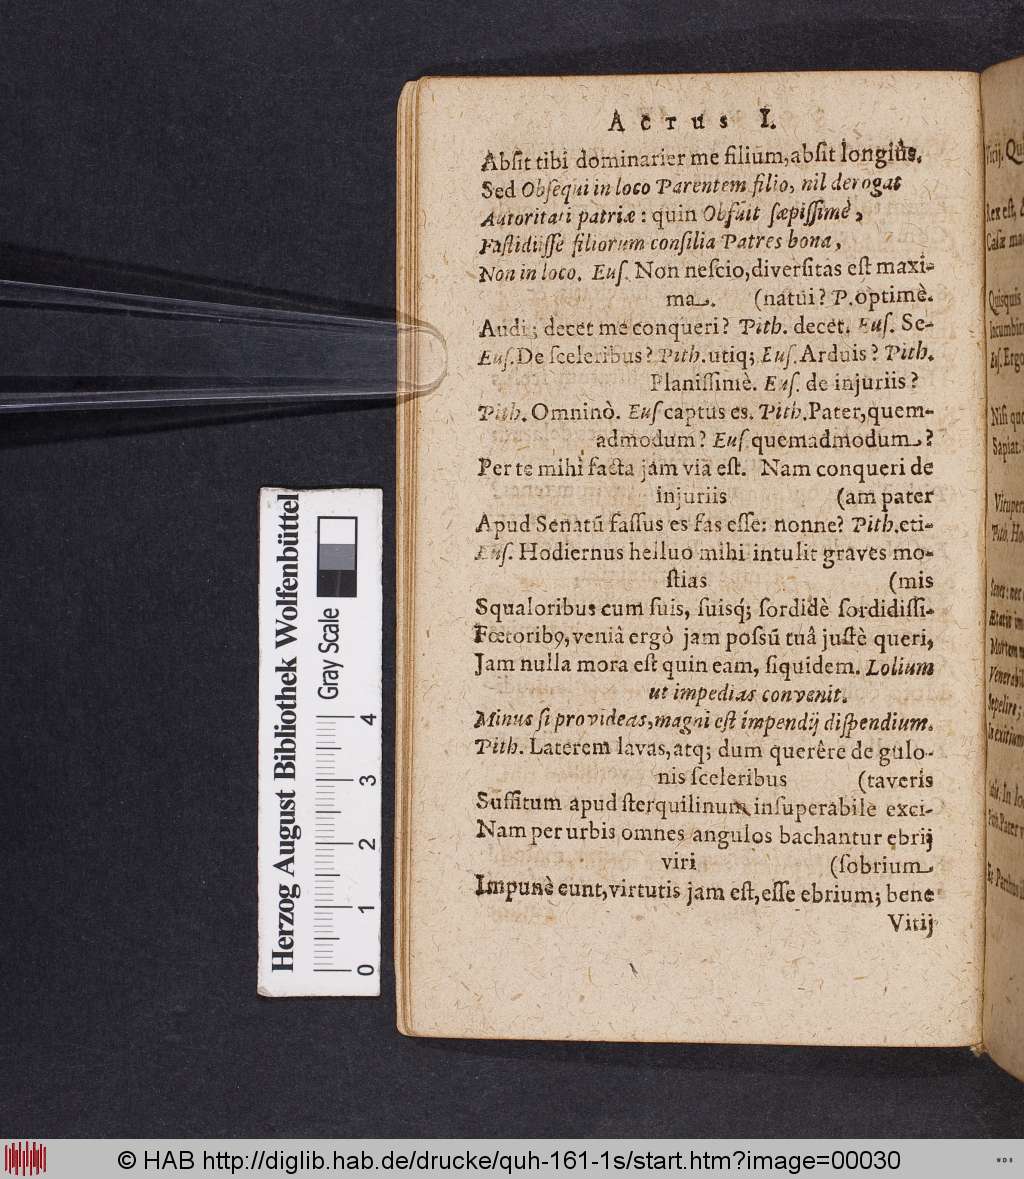 Actus I.
Abſit tibi dominarier me filium, abſit longiùs.
Sed Obſequi in loco Parentem filio, nil derogat
Autoritati patriæ: quin Obfuit ſæpiſſimè,
Faſtidiiſſe filiorum conſilia Patres bona,
Non in loco. Euſ. Non neſcio, diverſitas eſt maxi-
ma. (natui? P. optimè.
Audi; decet me conqueri? Pith. decet. Euſ. Se-
Euſ. De ſceleribus? Pith. utiq; Euſ. Arduis? Pith.
Planiſſimè. Euſ. de injuriis?
Pith. Omninò. Euſ captus es. Pith. Pater, quem-
admodum? Euſ quemadmodum?
Per te mihi facta jam via eſt. Nam conqueri de
injuriis (am pater
Apud Senatū faſſus es fas eſſe: nonne? Pith. eti-
Euſ. Hodiernus helluo mihi intulit graves mo-
ſtias (mis
Squaloribus cum ſuis, ſuisq́; ſordidè ſordidiſſi-
Fœtorib9, veniâ ergò jam poſsū tuâ juſtè queri,
Jam nulla mora eſt quin eam, ſiquidem. Lolium
ut impedias convenit.
Minus ſi provideas, magni eſt impendij diſpendium.
Pith. Laterem lavas, atq; dum querêre de gulo-
nis ſceleribus (taveris
Suffitum apud ſterquilinum inſuperabile exci-
Nam per urbis omnes angulos bachantur ebrij
viri (ſobrium
Impunè eunt, virtutis jam eſt, eſſe ebrium; bene
Vitij
Herzog August Bibliothek Wolfenbüttel
Gray Scale
0 1 2 3 4
© HAB http://diglib.hab.de/drucke/quh-161-1s/start.htm?image=00030